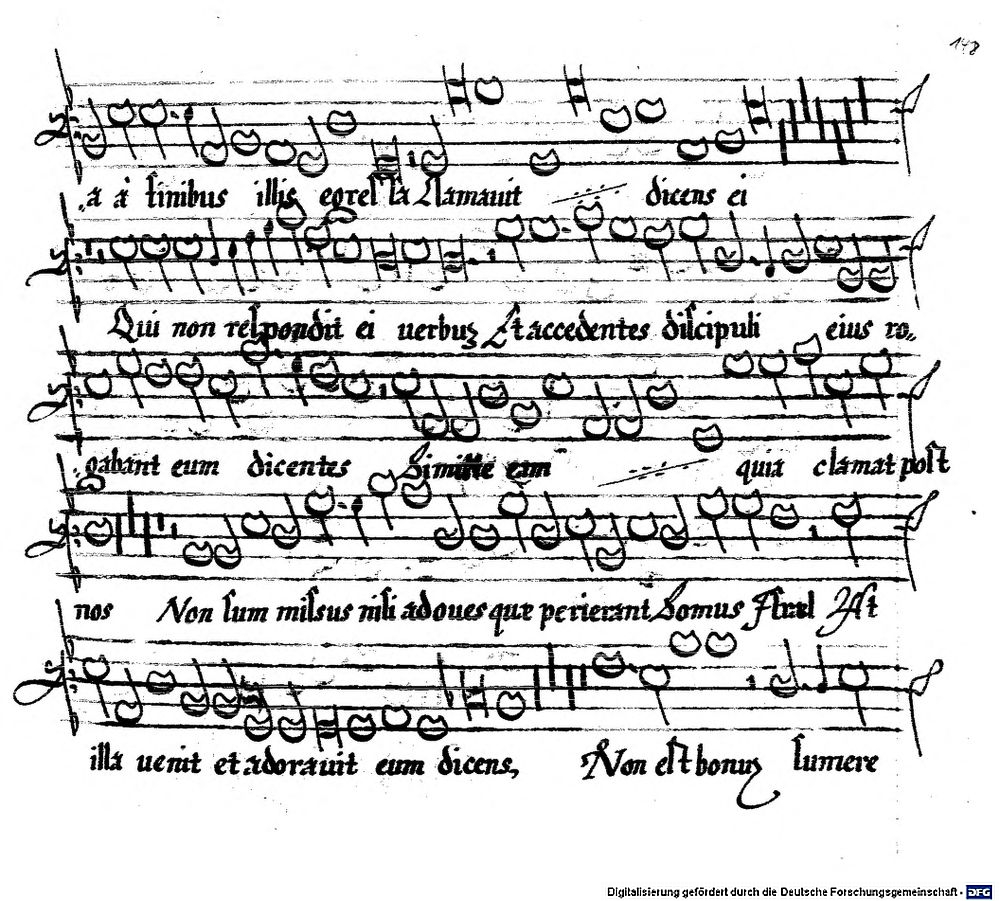 148
a à finibus illis egressa Clamauit dicens ei
Qui non respondit ei uerbuʒ Et accedentes discipuli eius ro„
gabant eum dicentes Dimitte eam quia clamat post
nos Non sum missus nisi ad oues quæ perierant Domus Israel Ast
illa uenit et adorauit eum dicens, Non est bonuʒ sumere
Digitalisierung gefördert durch die Deutsche Forschungsgemeinschaft - DFG